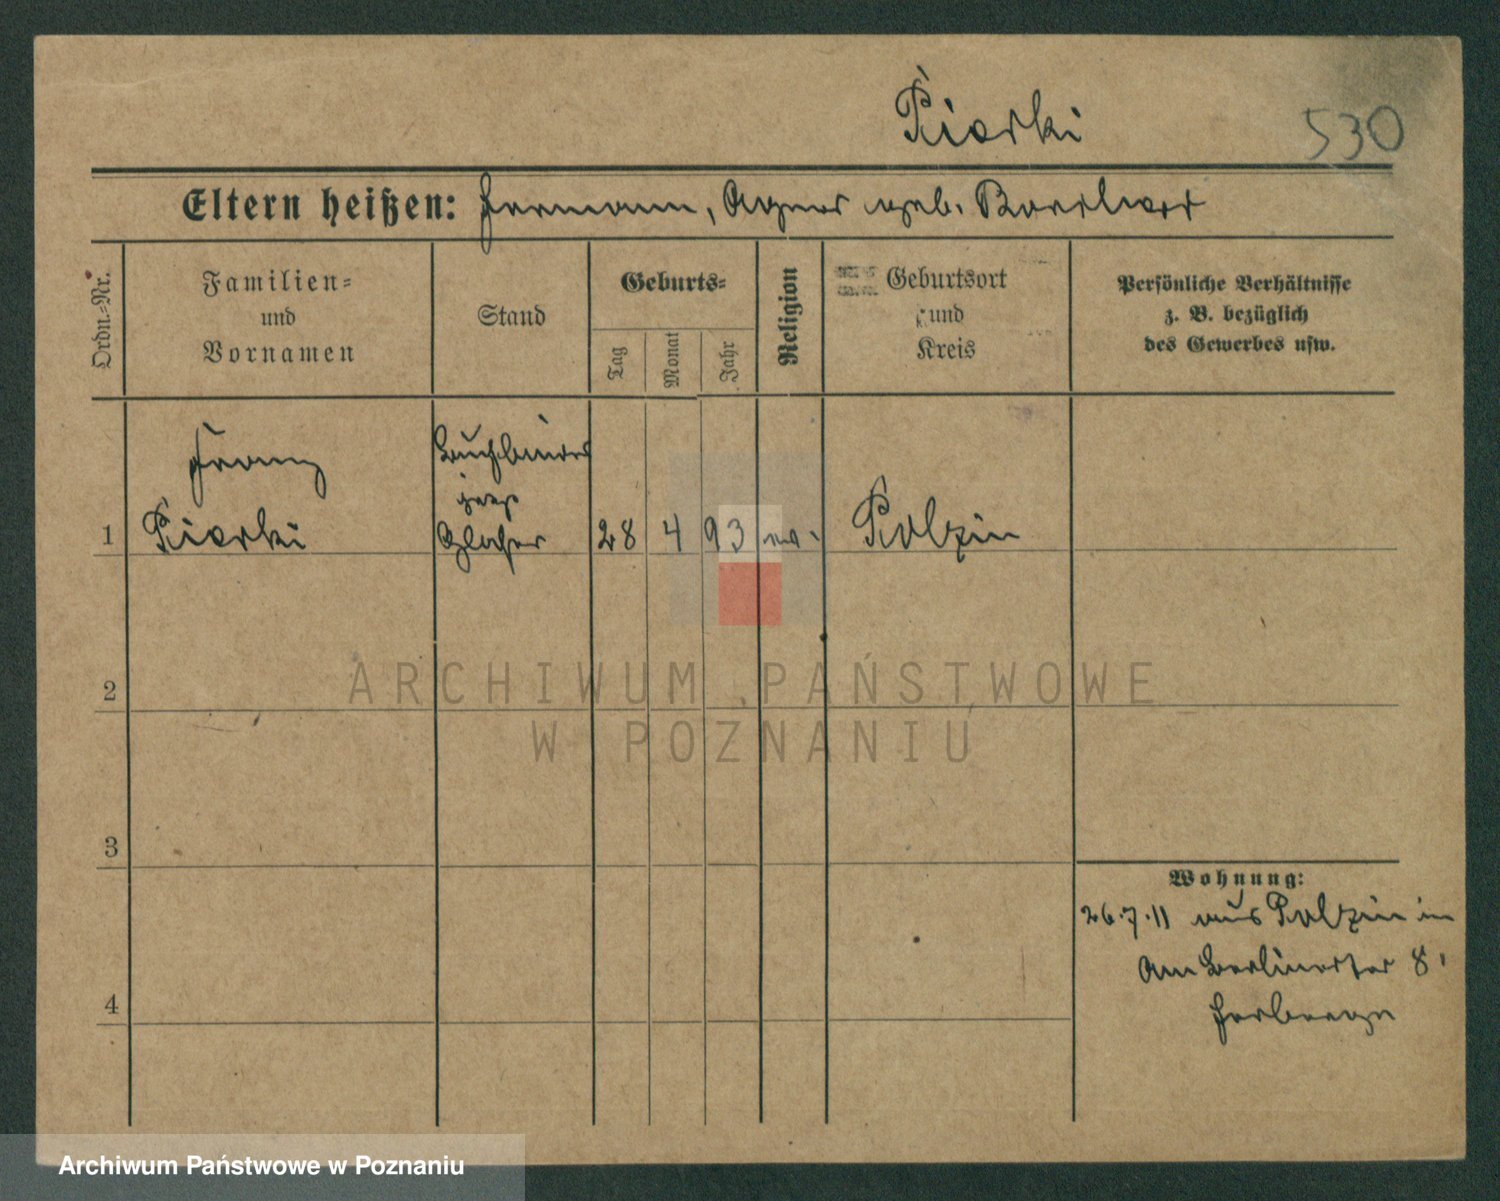 Piorki
530
Eltern heißen: Hermann, Agnes geb.
Ordn.=Nr.
Familien=
und
Vornamen
Stand
Geburts=
Tag
Monat
Jahr
Religion
Geburtsort
und
Kreis
Persönliche Verhältnisse
z. B. bezüglich
des Gewerbes usw.
Franz
Buchbinder
1 Piorki
28 4 93 ev. Polzin
2
3
4
Wohnung:
26.7.11 aus Polzin in
Am Berlinertor 8
Herberge
ARCHIWUM PAŃSTWOWE
W POZNANIU
Archiwum Państwowe w Poznaniu